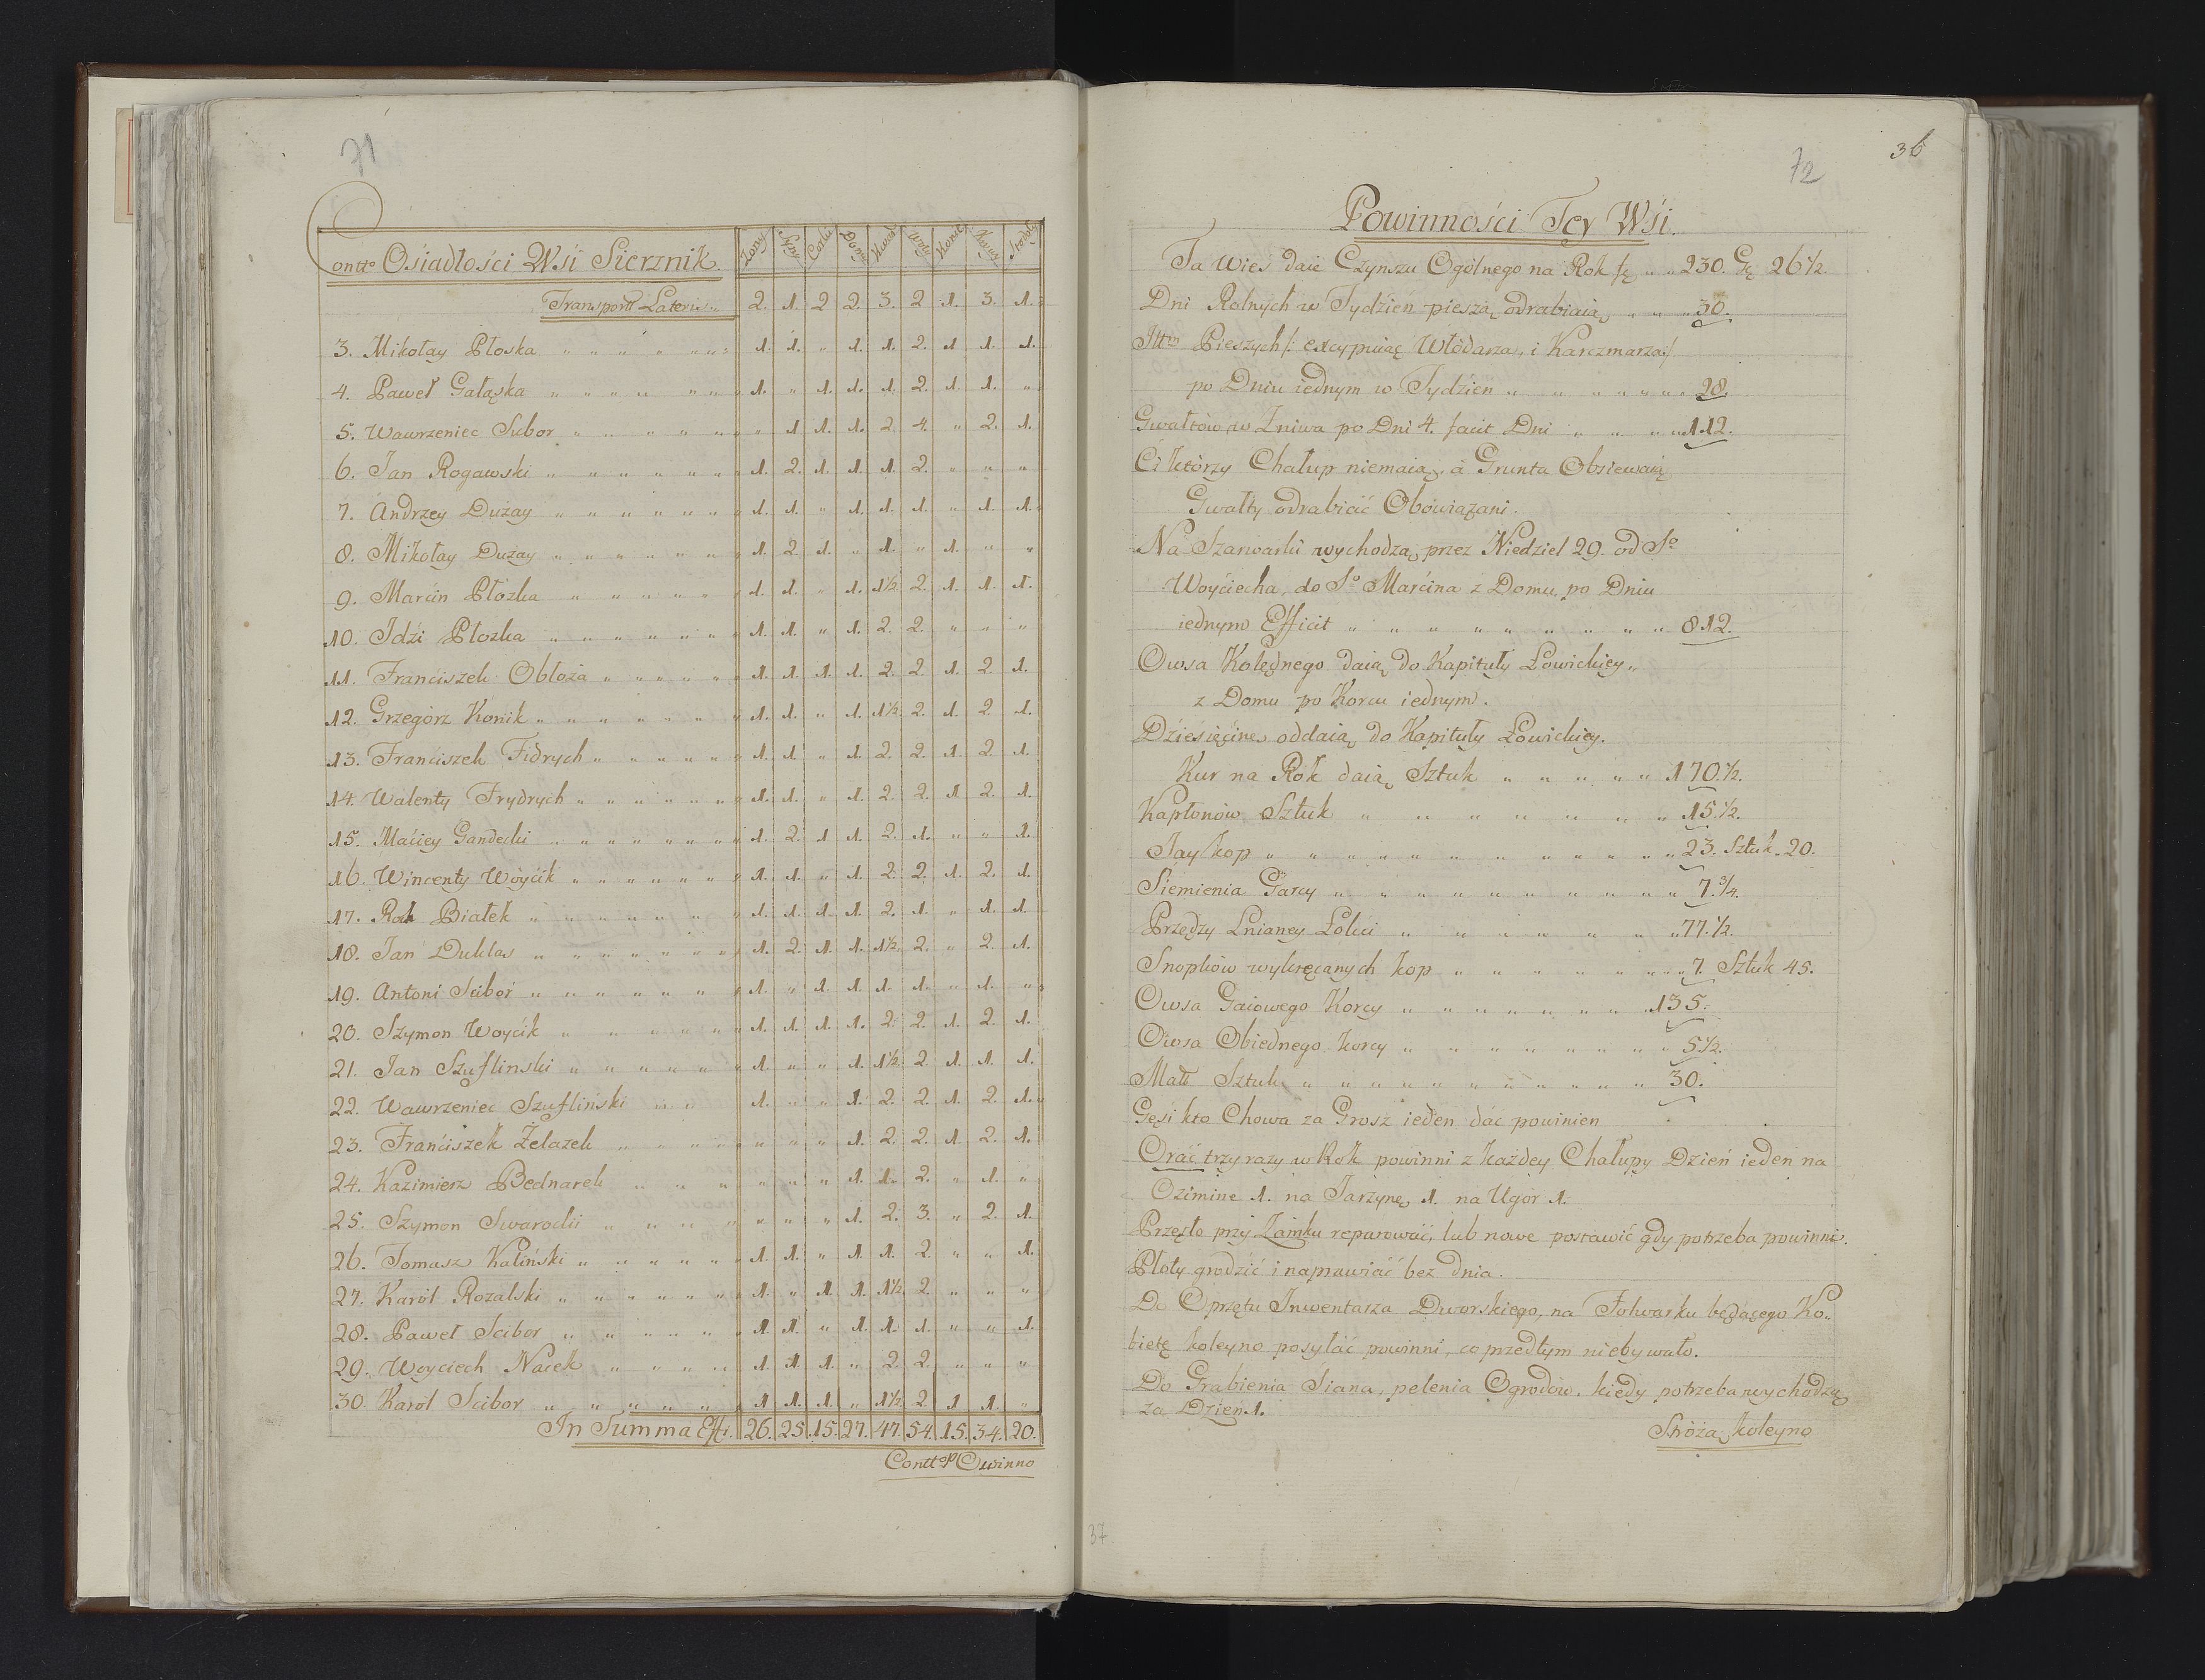 71
Contto Osiadłości Wśi Sierznik.
Żony Syny Córki Domy Woły Konie Krowy Stodoły
Transport Lateris 2. 1. 2 2. 3. 2 1. 3. 1.
3. Mikołay Płoska " " " " " " 1. 1. " 1. 1. 2. 1 1. 1.
4. Paweł Gałąska " " " " " " 1. " 1. 1. 1 2. 1. 1. "
5. Wawrzeniec Scibor " " " " " " " 1 1. 1. 2. 4. " 2. 1.
6. Jan Rogawski " " " " " " 1. 2. 1. 1. 1. 2. " " "
7. Andrzey Duzay " " " " " " 1. 1. " 1. 1. 1. " 1. 1.
8. Mikołay Duzay " " " " " " 1. 2. 1. " 1. " 1. " "
9. Marcin Płozka " " " " " 1. 1. " 1. 1½. 2. 1. 1. 1.
10. Idźi Płozka " " " " " " 1. 1. " 1. 2. 2. " " "
11. Franciszek Obłoza " " " " " 1. 1. 1. 1. 2. 2. 1. 2. 1.
12. Grzegorz Konik " " " " " " 1. 1. " 1. 1½. 2. 1. 2. 1.
13. Franciszek Fidrych " " " " " 1. 1. " 1. 2. 2. 1. 2. 1.
14. Walenty Frydrych " " " " " " 1. 1. " 1. 2. 2. 1 2. 1.
15. Maciey Gandecki " " " " " " 1. 2. 1 1. 2. 1. " " 1.
16. Wincenty Woycik " " " " " " 1. 1. " 1. 2. 2. 1. 2. 1.
17. Rok Białek " " " " " " 1. 1. 1. 1. 2. 1. " 1. 1.
18. Jan Duklas " " " " " " 1. 2. 1. 1. 1½. 2. " 2. 1.
19. Antoni Scibor " " " " " " 1. " 1. 1. 1. 1. " 1. "
20. Szymon Woycik " " " " " " 1. 1. 1. 1. 2. 2. 1. 2. 1.
21. Jan Szuflinski " " " " " " 1. " " 1. 1½. 2. 1. 1. 1.
22. Wawrzeniec Szufliński " " 1. " " 1. 2. 2. 1. 2. 1.
23. Franciszek Żelazek " " " " " " " 1. 2. 2. 1. 2. 1.
24. Kazimierz Bednarek " " " " " " 1. 1. 2. " 1. "
25. Szymon Swarocki " " " " " " " 1. 2. 3. " 2. 1.
26. Tomasz Kaliński " " " " " " 1. 1. " 1. 1. 2. " " 1.
27. Karól Rozalski " " " " " " 1. " 1. 1. 1½. 2. " " "
28. Paweł Scibor " " " " " 1. 1. " 1. 1. 1. " " 1.
29. Woyciech Nacek " " " " 1. 1. 1. " 2. 2. " " "
30. Karól Scibor " " " " " 1 1. 1. " 1½. 2 1 1. "
In Summa Effi. 26. 25. 15. 27. 47. 54. 15. 34. 20.
Contto Powinno
36
72
Powinności Tey Wśi.
Ta Wieś daie Czynszu Ogólnego na Rok " " 230. 26½.
Dni Rolnych w Tydźień pieszą odrabiaią " " " 30.
Itto Pieszych /: excypuiąc Włódarza, i Karczmarza :/
po Dniu iednym w Tydzien " " " " " " 28.
Gwałtów, w Zniwa po Dni 4. facit Dni " " " " 112.
Ći którzy Chałup niemaią, à Grunta Obsiewaią
Gwałty odrabiać Obowiązani.
Na Szarwarki wychodzą, przez Niedziel 29. od So
Woyćiecha, do So Marćina z Domu, po Dniu
iednym Efficit " " " " " " " " " 812.
Owsa Kolędnego daią do Kapituły Łowickiey,
z Domu po Korcu iednym.
Dźieśięćinę oddaią do Kapituły Łowickiey.
Kur na Rok daią Sztuk " " " " " 170½.
Kapłonów Sztuk " " " " " " " " 15½.
Jay kop " " " " " " " " " " 23. Sztuk. 20.
Siemienia Garcy " " " " " " " " " 7¾.
Przędzy Lnianey Łokci " " " " " " " 77½.
Snopków wykręcanych kop " " " " " " " 7. Sztuk 45.
Owsa Gaiowego Korcy " " " " " " " 135.
Owsa Obiednego korcy " " " " " " " 5½.
Matt Sztuk " " " " " " " " " " 30.
Gęsi kto Chowa za Grosz ieden dać powinien
Orać trzy razy w Rok powinni z każdey Chałupy Dzień ieden na
Ozimine 1. na Jarzynę 1. na Ugór 1.
Przęsło przy Zamku reparować, lub nowe postawić gdy potrzeba powinni.
Płoty grodzić i naprawiać bez dnia.
Do Oprzętu Inwentarza Dworskiego, na Folwarku będącego Ko-
bietę koleyno posyłać powinni, co przedtym niebywało.
Do Grabienia Śiana, pelenia Ogrodów, kiedy potrzeba wychodzą
za Dzień 1.
Stróżą koleyno
37